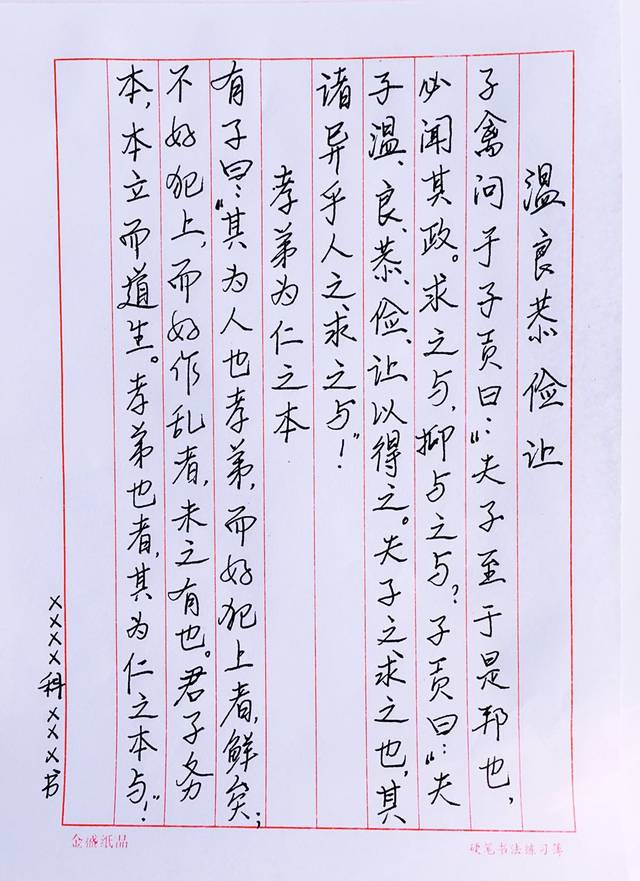 温良恭俭让
子禽问于子贡曰：“夫子至于是邦也，
必闻其政。求之与，抑与之与？子贡曰：“夫
子温、良、恭、俭、让以得之。夫子之求之也，其
诸异乎人之求之与！”
孝弟为仁之本
有子曰：“其为人也孝弟，而好犯上者，鲜矣；
不好犯上，而好作乱者，未之有也。君子务
本，本立而道生。孝弟也者，其为仁之本与！”
××××科×××书
金盛纸品
硬笔书法练习簿